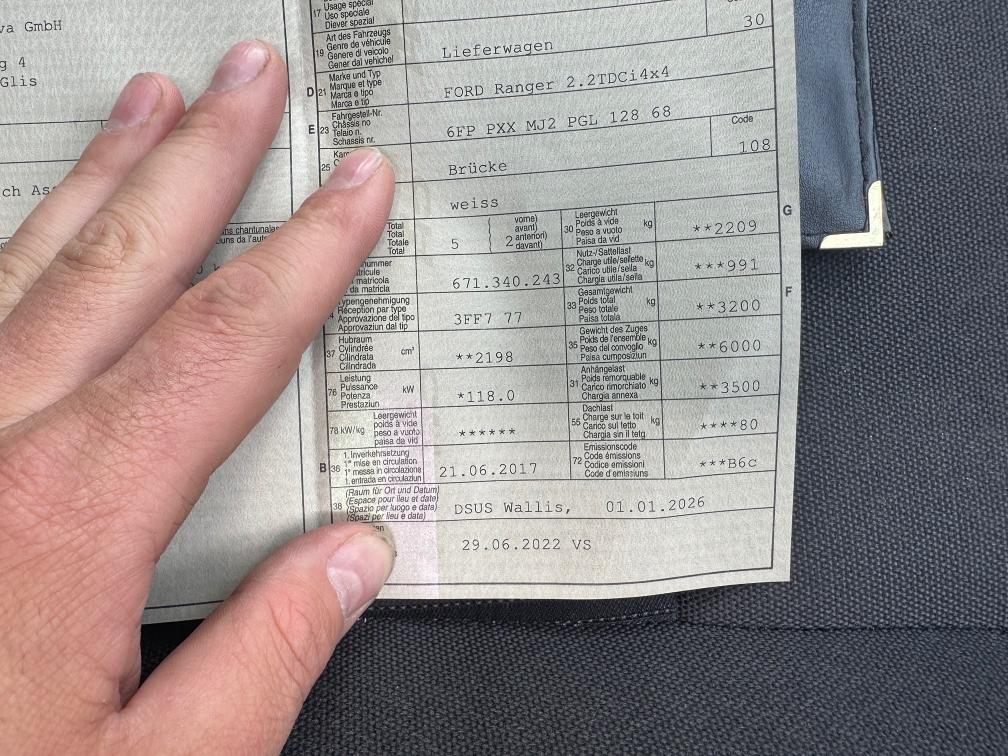 va GmbH
g 4
Glis
ch Ass
17 Usage spécial
Uso speciale
Diever spezial
Art des Fahrzeugs
19 Genre de véhicule
Genere di veicolo
Gener dal vehichel
Lieferwagen
30
D 21 Marke und Typ
Marque et type
Marca e tipo
Marca e tip
FORD Ranger 2.2TDCi4x4
E 23 Fahrgestell-Nr.
Châssis no
Telaio n.
Schassis nr.
6FP PXX MJ2 PGL 128 68
25
Brücke
Code
108
weiss
Total
Total
Totale
Total
5
2
vorne)
avant)
anteriori)
davant)
30 Leergewicht
Poids à vide kg
Peso a vuoto
Paisa da vid
**2209
G
671.340.243
32 Nutz-/Sattellast
Charge utile/sellette kg
Carico utile/sella
Chargia utila/sella
***991
Typengenehmigung
Réception par type
Approvazione del tipo
Approvaziun dal tip
3FF7 77
33 Gesamtgewicht
Poids total kg
Peso totale
Paisa totala
**3200
F
37 Hubraum
Cylindrée cm³
Cilindrata
Cilindrada
**2198
35 Gewicht des Zuges
Poids de l'ensemble kg
Peso del convoglio
Paisa cumposiziun
**6000
76 Leistung
Puissance kW
Potenza
Prestaziun
*118.0
31 Anhängelast
Poids remorquable kg
Carico rimorchiato
Chargia annexa
**3500
78 kW/kg Leergewicht
poids à vide
peso a vuoto
paisa da vid
******
55 Dachlast
Charge sur le toit kg
Carico sul tetto
Chargia sin il tetg
****80
B 36 1. Inverkehrsetzung
1re mise en circulation
1a messa in circolazione
1. entrada en circulaziun
21.06.2017
72 Emissionscode
Code émissions
Codice emissioni
Code d'emissiuns
***B6c
38 (Raum für Ort und Datum)
(Espace pour lieu et date)
(Spazio per luogo e data)
(Spazi per lieu e data)
DSUS Wallis, 01.01.2026
29.06.2022 VS